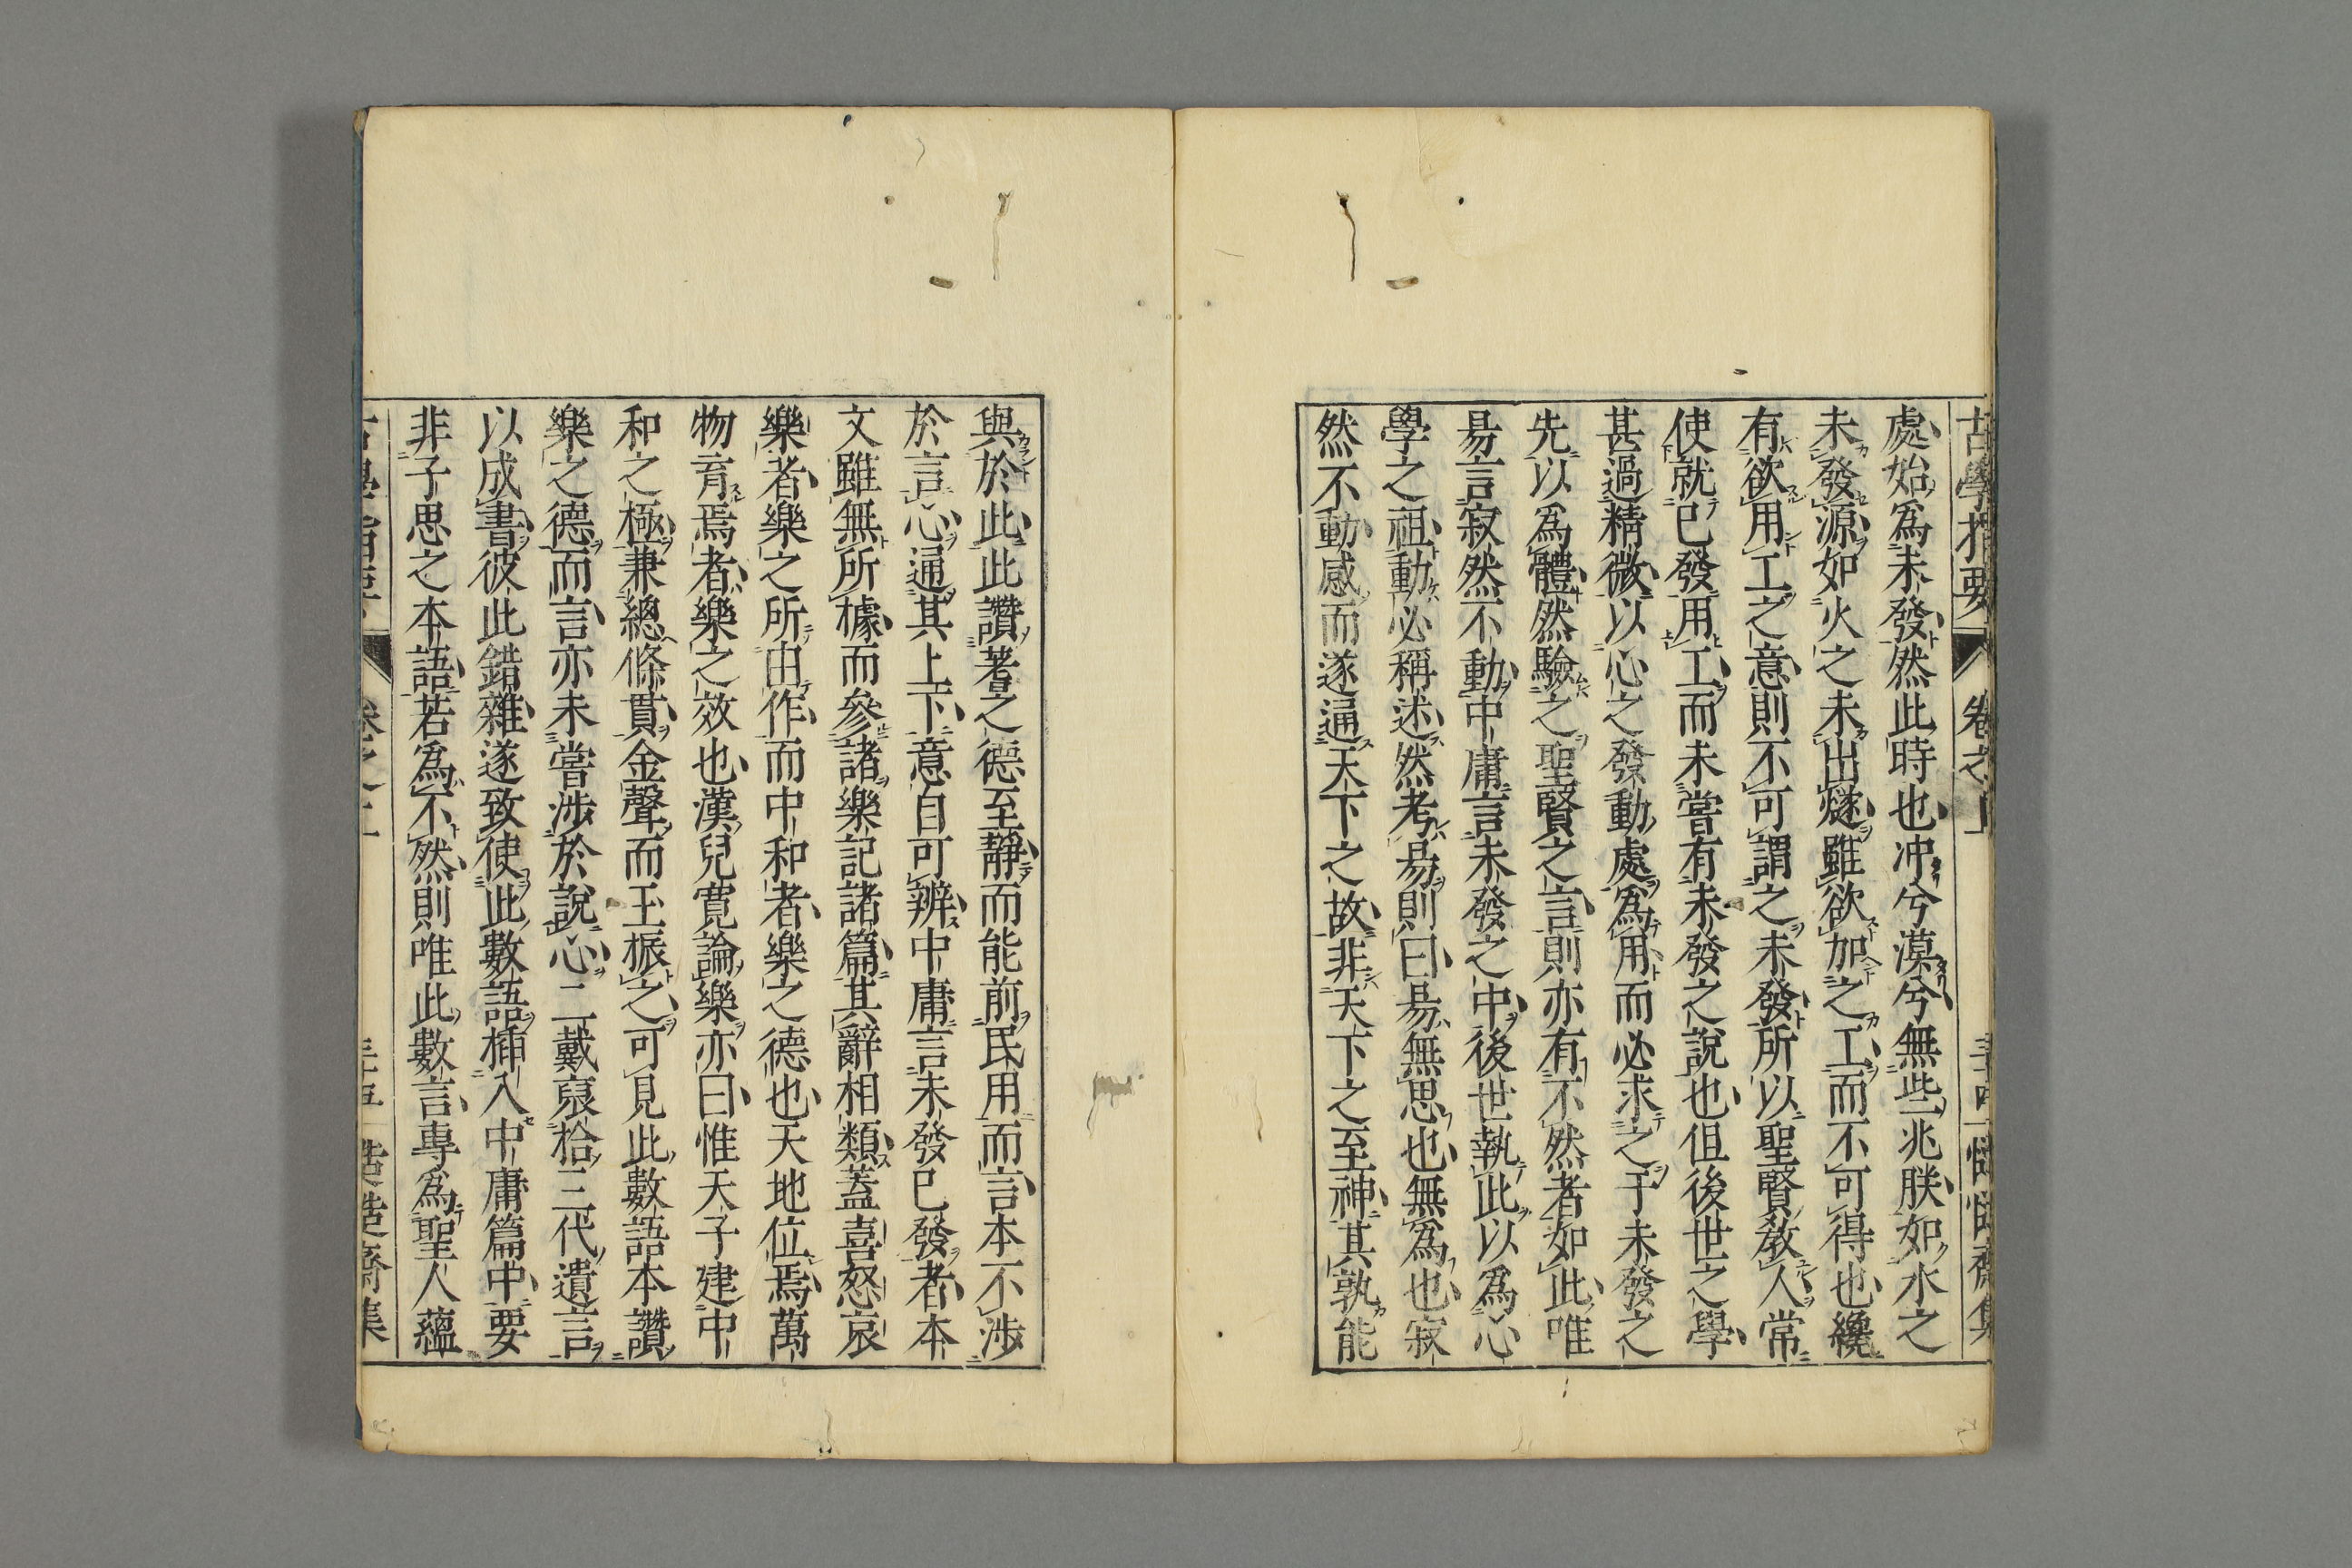 古學指要 卷之上 三十四 慥慥齋集
處始爲未發然此時也冲兮漠兮無些兆朕如水之
未發源如火之未出燧雖欲加之工而不可得也纔
有欲用工之意則不可謂之未發所以聖賢敎人常
使就已發用工而未嘗有未發之說也但後世之學
甚過精微以心之發動處爲用而必求之于未發之
先以爲體然驗之聖賢之言則亦有不然者如此唯
易言寂然不動中庸言未發之中後世執此以爲心
學之祖動必稱述然考易則曰易無思也無爲也寂
然不動感而遂通天下之故非天下之至神其孰能
與於此此讚蓍之德至靜而能前民用而言本不涉
於言心通其上下意自可辨中庸言未發已發者本
文雖無所據而參諸樂記諸篇其辭相類蓋喜怒哀
樂者樂之所由作而中和者樂之德也天地位焉萬
物育焉者樂之效也漢兒寬論樂亦曰惟天子建中
和之極兼總條貫金聲而玉振之可見此數語本讚
樂之德而言亦未嘗涉於說心二戴裒拾三代遺言
以成書彼此錯雜遂致使此數語揷入中庸篇中要
非子思之本語若爲不然則唯此數言專爲聖人蘊
古學指要 卷之上 三十五 慥慥齋集